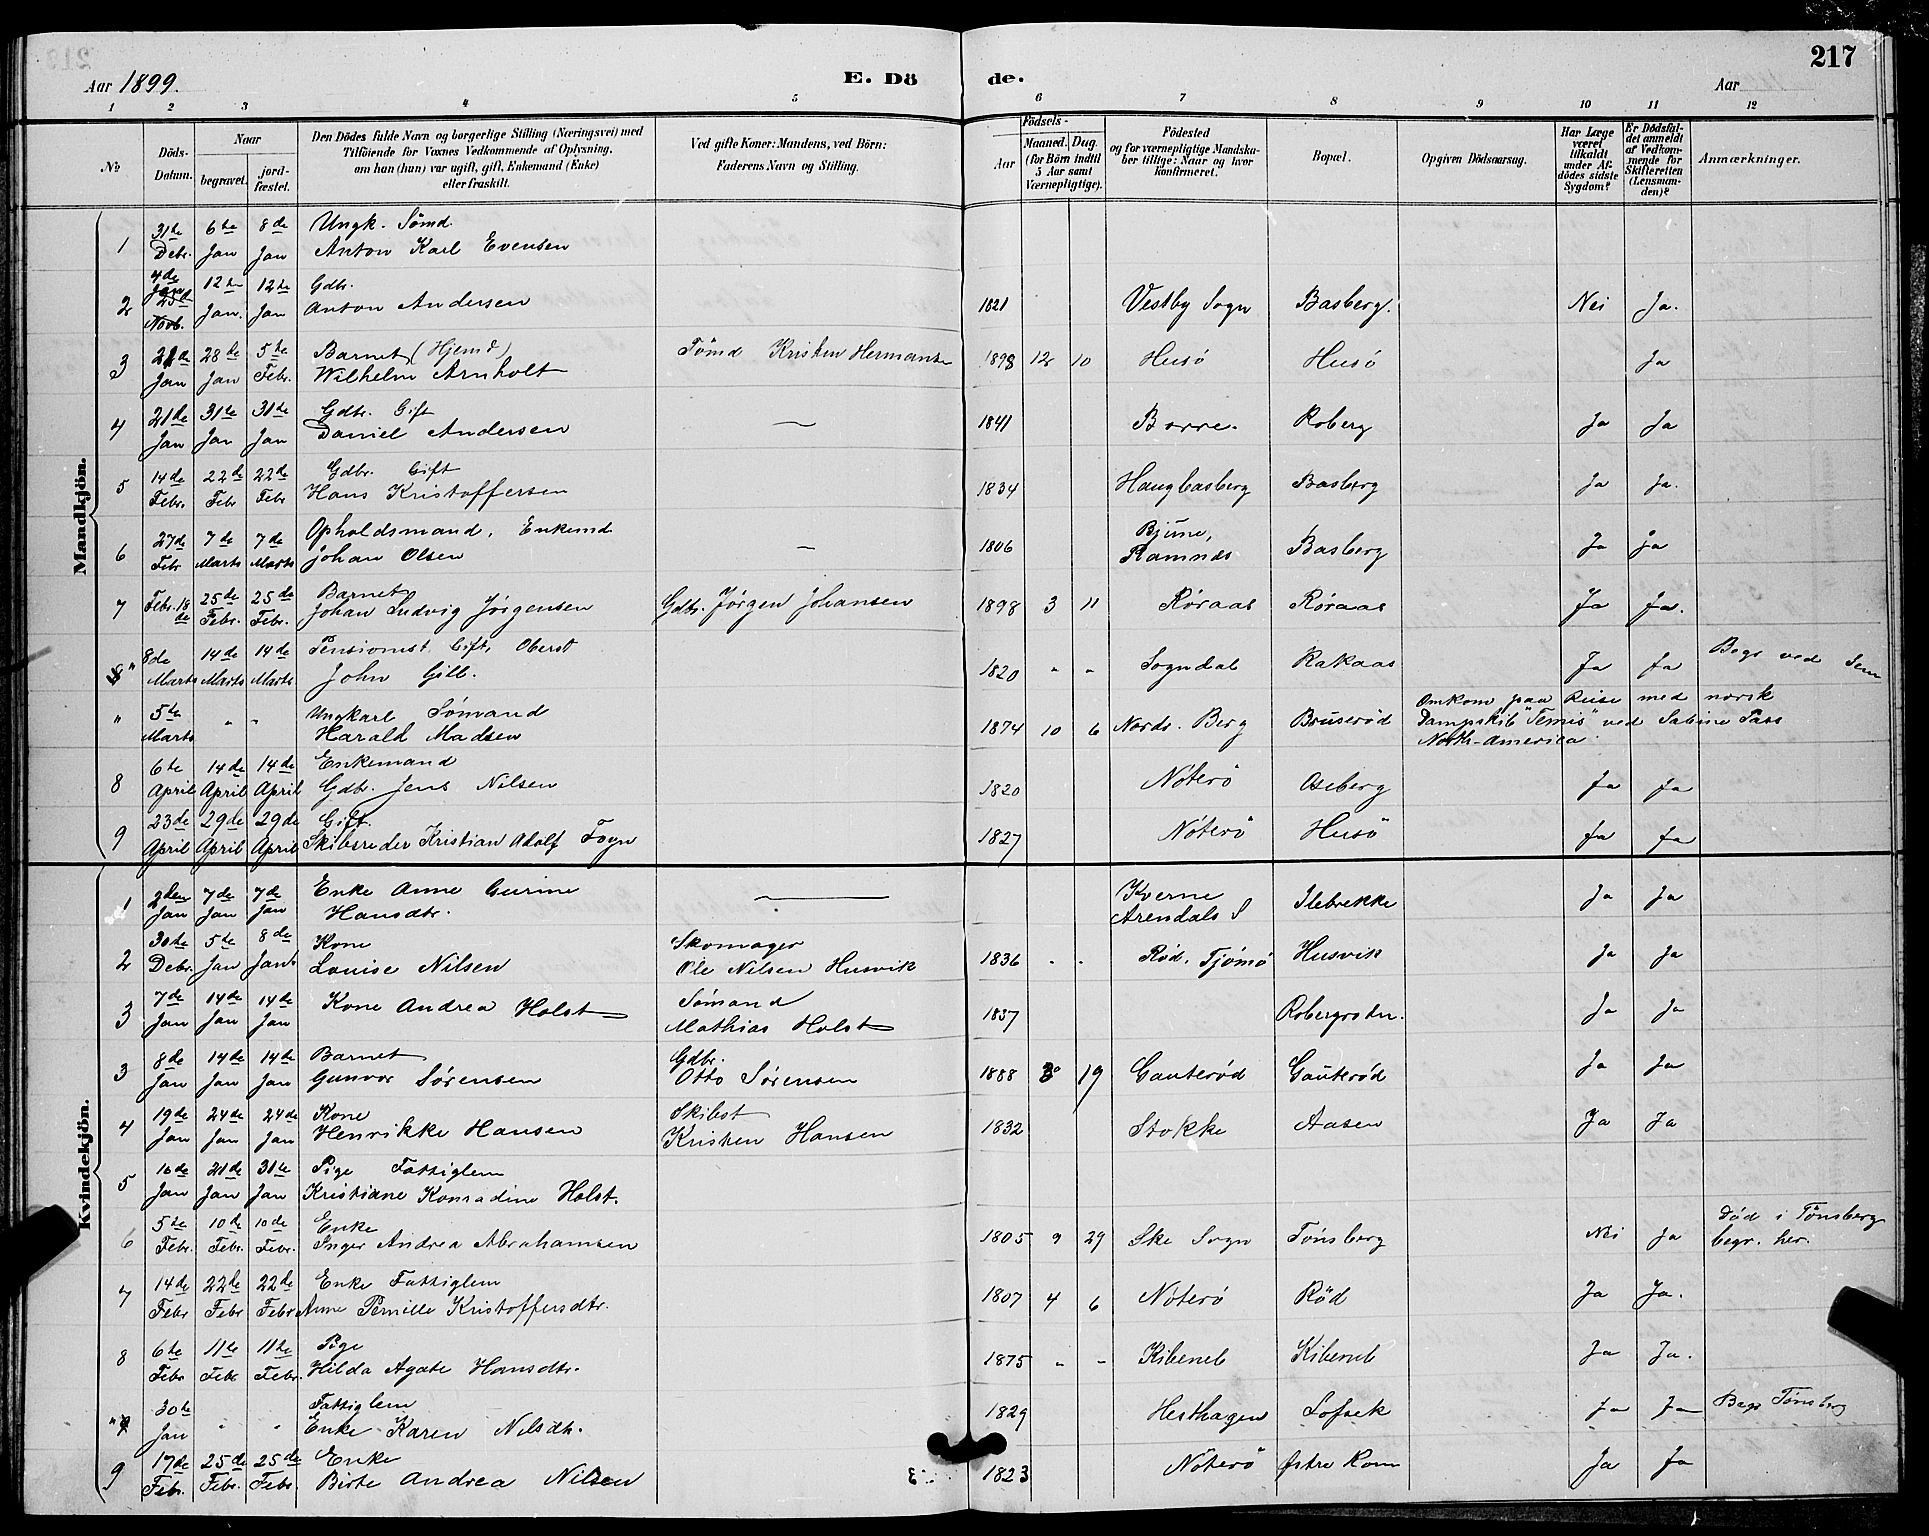 217
Aar 1899.
E. Döde.
Aar
1 2 3 4 5 6 7 8 9 10 11 12
№
Döds-Datum.
Naar
begravet.
jordfæstet.
Den Dödes fulde Navn og borgerlige Stilling (Næringsvei) med
Tilföiende for Voxnes Vedkommende af Oplysning,
om han (hun) var ugift, gift, Enkemand (Enke)
eller fraskilt.
Ved gifte Koner: Mandens, ved Börn:
Faderens Navn og Stilling.
Födsels-
Aar
Maaned. Dag.
(for Börn indtil
5 Aar samt
Værnepligtige).
Födested
og for værnepligtige Mandska-
ber tillige: Naar og hvor
konfirmeret.
Bopæl.
Opgiven Dödsaarsag.
Har Læge
været
tilkaldt
under Af-
dödes sidste
Sygdom?
Er Dödsfal-
det anmeldt
af Vedkom-
mende for
Skifteretten
(Lensman-
den)?
Anmærkninger.
Mandkjön.
1 31te Debr. 6te Jan 8de Jan Ungk. Sömd. Anton Karl Evensen
2 4de Jan 12te Jan. 12te Jan Gdb. Anton Andersen 1821 Vestby Sogn Basberg. Nei Ja.
3 21de Jan 28de Jan 5te Febr. Barnet (Hjemd) Wilhelm Arnholt Tömd Kristen Hermansen 1898 12 10 Husö Husö Ja
4 21de Jan 31te Jan 31te Jan Gdbr. Gift Daniel Andersen — 1841 Borre. Roberg Ja Ja
5 14de Febr. 22de Febr 22de Febr Gdbr. Gift Hans Kristoffersen 1834 Haugbasberg Basberg Ja Ja.
6 27de Febr 7de Marts 7de Marts Opholdsmand, Enkemd Johan Olsen — 1806 Bjune, Ramnæs Basberg Ja Ja
7 Febr. 18de 25de Febr. 25de Febr. Barnet Johan Ludvig Jørgensen Gdbr. Jørgen Johansen 1898 3 11 Røraas Røraas Ja Ja.
" 8de Marts 14de Marts 14de Marts Pensionist Gift, Oberst John Gill. 1820 " " Sogndal Rakaas Ja Ja Begr ved Sem
" 5te Marts " " Ungkarl Sömand Harald Madsen 1874 10 6 Nordr. Berg Bruserød Omkom paa Reise med norsk
Dampskib "Temis" ved Sabine Pass
North-America.
8 6te April 14de April 14de April Enkemand Gdb. Jens Nilsen 1820 Nöterö Oseberg Ja Ja
9 23de April 29de April 29de April Gift. Skibsreder Kristian Adolf Foyn 1827 Nöterö Husö Ja Ja
Kvindekjön.
1 2den Jan 7de Jan 7de Jan Enke Anne Gurine Hansdtr. — Kverne Arendals S Ilebrekke Ja Ja
2 30te Debr. 5te Jan 8de Jan. Kone Louise Nilsen Skomager Ole Nilsen Husvik 1836 " " Rød. Tjömö Husvik Ja Ja
3 7de Jan 14de Jan 14de Jan Kone Andrea Holst Sömand Mathias Holst 1837 Robergrødn. Ja Ja
3 8de Jan 14de Jan 14de Jan Barnet Gunvor Sørensen Gdbr. Otto Sørensen 1888 3 19 Gauterød Gauterød Ja Ja
4 19de Jan 24de Jan 24de Jan Kone Henrikke Hansen Skibst Kristen Hansen 1832 Stokke Aasen Ja Ja
5 16de Jan 21de Jan 31te Jan Pige Fattiglem Kristiane Konradine Holst.
6 5te Febr. 10de Febr. 10de Febr. Enke Inger Andrea Abrahamsen 1805 9 29 Ske Sogn Tönsberg Nei Ja Död i Tönsberg begr. her.
7 14de Febr 22de Febr 22de Febr Enke Fattiglem Anne Pernille Kristoffersdtr. 1807 4 6 Nöterö Röd Ja Ja.
8 6te Febr 11te Febr 11te Febr. Pige Hilda Agate Hansdtr. 1875 " " Kibeneb Kibeneb Ja Ja.
" 30te Jan " " Fattiglem Enke Karen Nilsdtr. 1829 Hesthagen Lofsek Ja Ja Begr Tönsberg
9 17de Febr. 25de Febr. 25de Febr. Enke Birte Andrea Nilsen 1823 Nöterö Østre Rom Ja Ja